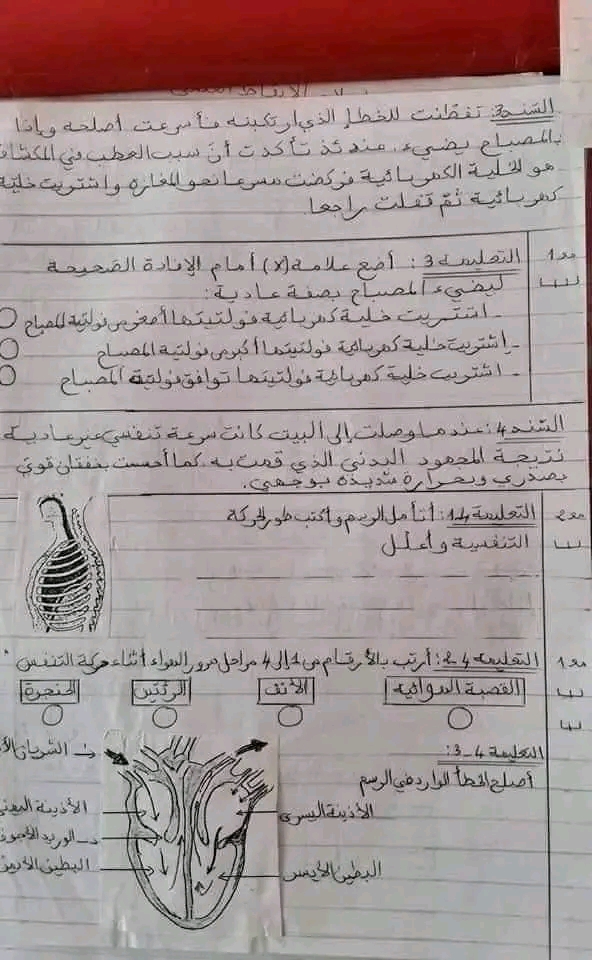 السّند3: تفطّنت للخطإ الذي ارتكبته فأسرعت أصلحه وإذا
بالمصباح يضيء. عندئذ تأكدت أنّ سبب العطب في المكشاف
هو الخلية الكهربائية فركضت مسرعا نحو المغازة واشتريت خليّة
كهربائية ثمّ قفلت راجعا.
التعليمة 3: أضع علامة (x) أمام الإفادة الصّحيحة
مع1
ليضيء المصباح بصفة عادية:
- اشتريت خلية كهربائية فولتيتها أصغر من فولتية المصباح
- اشتريت خلية كهربائية فولتيتها أكبر من فولتية المصباح
- اشتريت خلية كهربائية فولتيتها توافق فولتية المصباح
السّند4: عندما وصلت إلى البيت كانت سرعة تنفسي غير عادية
نتيجة المجهود البدني الذي قمت به كما أحسست بخفقان قويّ
بصدري وبحرارة شديدة بوجهي.
التعليمة 4-1: أتأمل الرسم وأكتب طور الحركة
مع2
التنفسية وأعلّل
التعليمة 4-2: أرتب بالأرقام من 1 إلى 4 مراحل مرور الهواء أثناء حركة التنفس
مع1
القصبة الهوائية
الأنف
الرئتين
الحنجرة
التعليمة 4-3:
أصلح الخطأ الوارد في الرسم
الشريان
الأذينة اليسرى
الأذينة اليمنى
الوريد الأجوف
البطين الأيسر
البطين